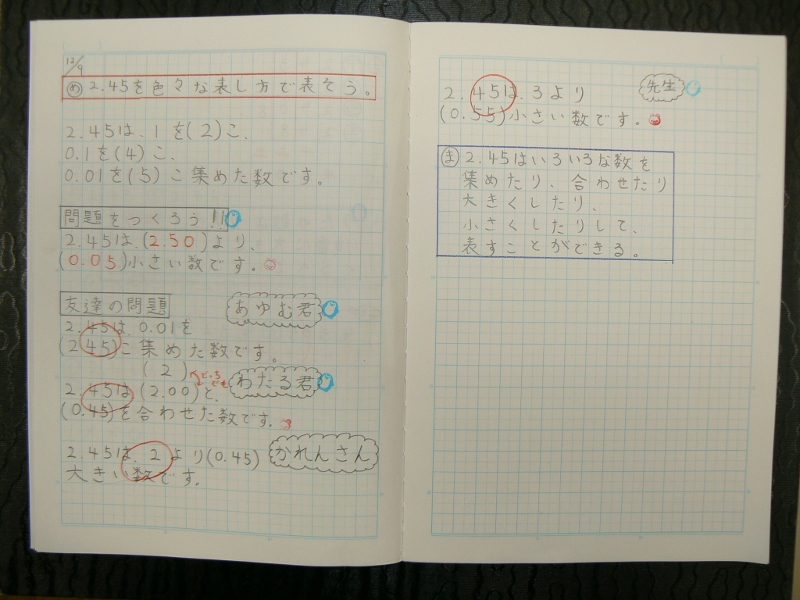 12/9
め 2.45を色々な表し方で表そう。
2.45は、1を(2)こ、
0.1を(4)こ、
0.01を(5)こ集めた数です。
問題をつくろう!!
2.45は、(2.50)より、
(0.05)小さい数です。
友達の問題
あゆむ君
2.45は、0.01を
(245)こ集めた数です。
(2)
どちらでも
わたる君
2.45は(2.00)と、
(0.45)を合わせた数です。
2.45は、2より(0.45)
かれんさん
大きい数です。
先生
2.45は、3より
(0.55)小さい数です。
ま 2.45はいろいろな数を
集めたり、合わせたり
大きくしたり、
小さくしたりして、
表すことができる。